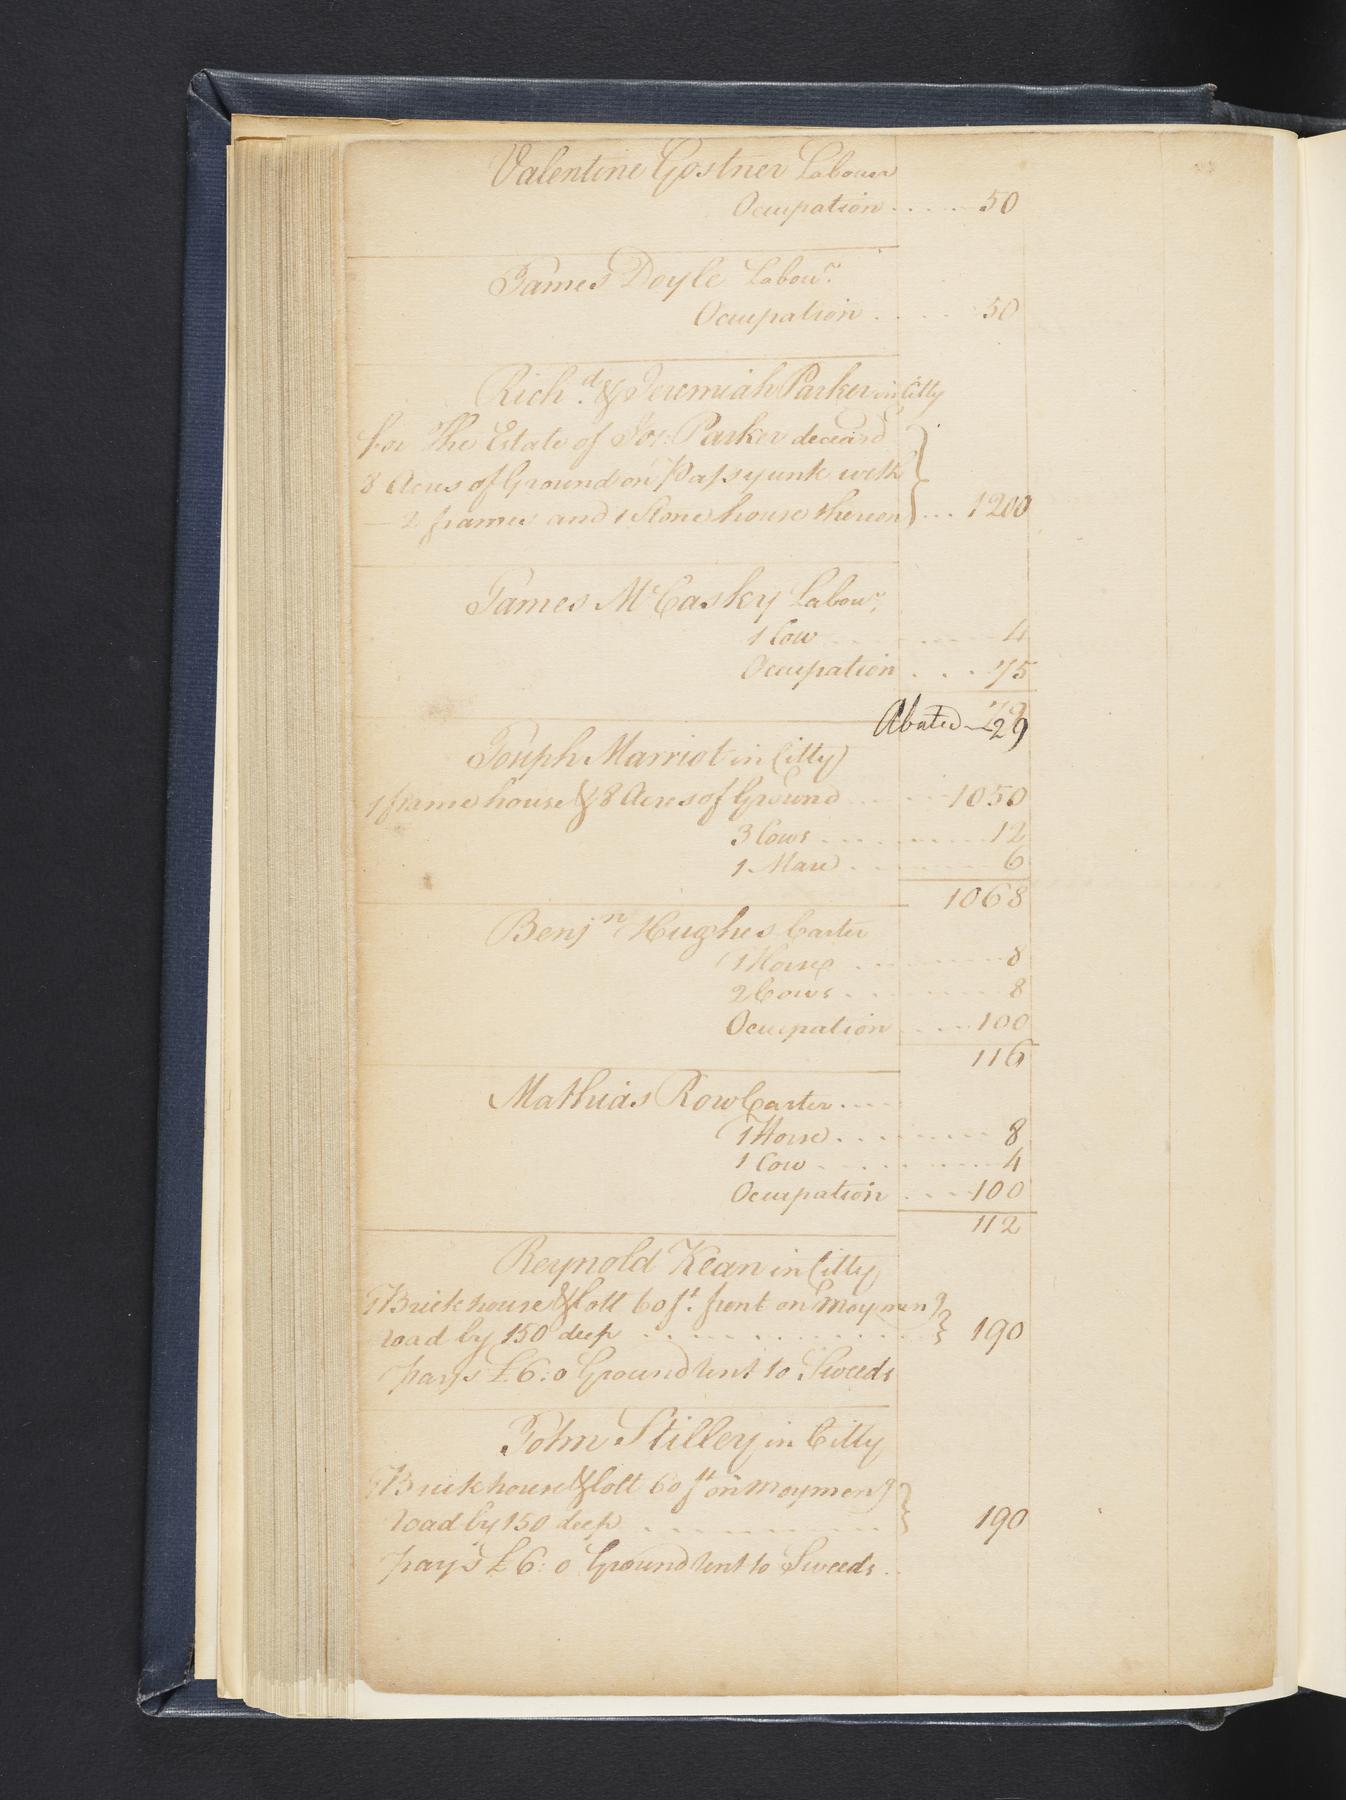 Valentine Gostner Labourr
Ocupation . . . . . 50
James Doyle Labour.
Ocupation . . . . 50
Richd. & Jeremiah Parker in Citty
for The Estate of Jos: Parker deceasd
8 Acres of Ground on Passyunk with
2 frames and 1 Stone house thereon ... 1200
James McCasky Labour,
1 Cow . . . . 4
Ocupation . . . 75
79
Abated — 29
Joseph Marriot in Citty
1 frame house & 8 Acres of Ground . . . . 1050
3 Cows . . . . 12
1 Mare . . . . 6
1068
Benjn Hughes Carter
1 Horse . . . . 8
2 Cows . . . . 8
Ocupation . . . . 100
116
Mathias Row Carter . . . .
1 Horse . . . . 8
1 Cow . . . . 4
Ocupation . . . 100
112
Reynold Kean in Citty
1 Brick house & lott 60 ft. front on Moymen g
road by 150 deep . . . . 190
pays £6:0 Ground rent to Sweeds
John Stilley in Citty
1 Brick house & lott 60 ft on Moymen g
road by 150 deep . . . . 190
pays £6:0 Ground rent to Sweeds . .